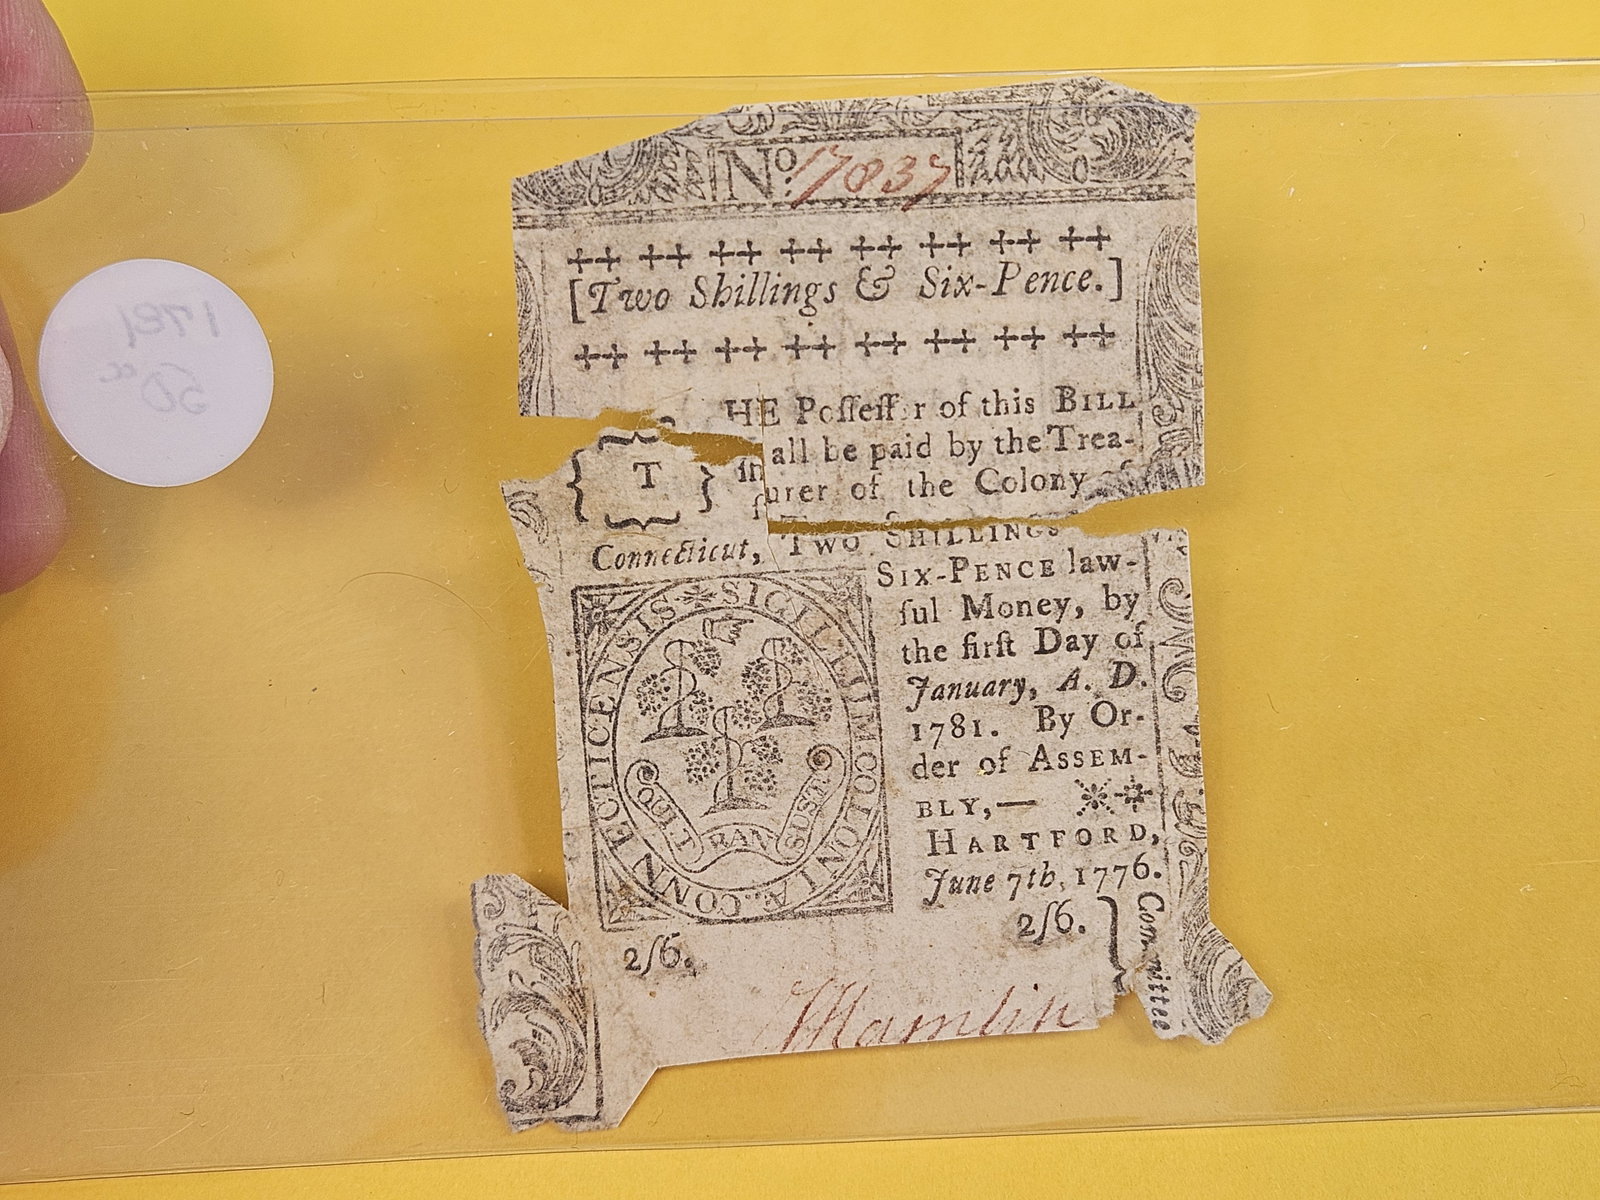 No. 17837
[Two Shillings & Six-Pence.]
HE Poſſeſſ r of this BILL
T
all be paid by the Trea-
urer of the Colony of
Connecticut, TWO SHILLINGS
SIX-PENCE law-
ful Money, by
the firſt Day of
January, A. D.
1781. By Or-
der of ASSEM-
BLY,—
HARTFORD,
June 7th, 1776.
SIGILLUM COLONIÆ CONNECTICENSIS
QUI TRAN SUST
2ſ6.
2ſ6.
Committee
Hamlin
1781
50